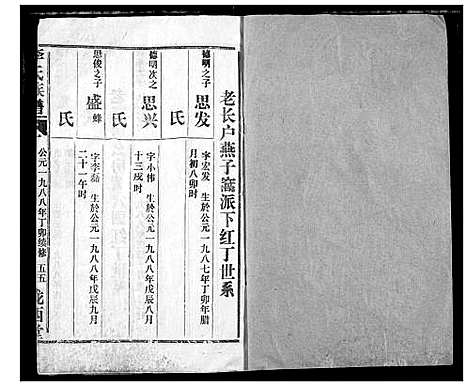 老长户燕子窩派下红丁世系
德明之子
思发
字宏发 生於公元一九八七年丁卯年腊
月初八卯时
氏
德明次之
思兴
字小伟 生於公元一九八八年戊辰八月
十三戍时
氏
思俊之子
盛蜂
字李磊 生於公元一九八八年戊辰九月
二十一午时
氏
李氏族譜
公元一九八八年丁卯续修
五五
陇西堂